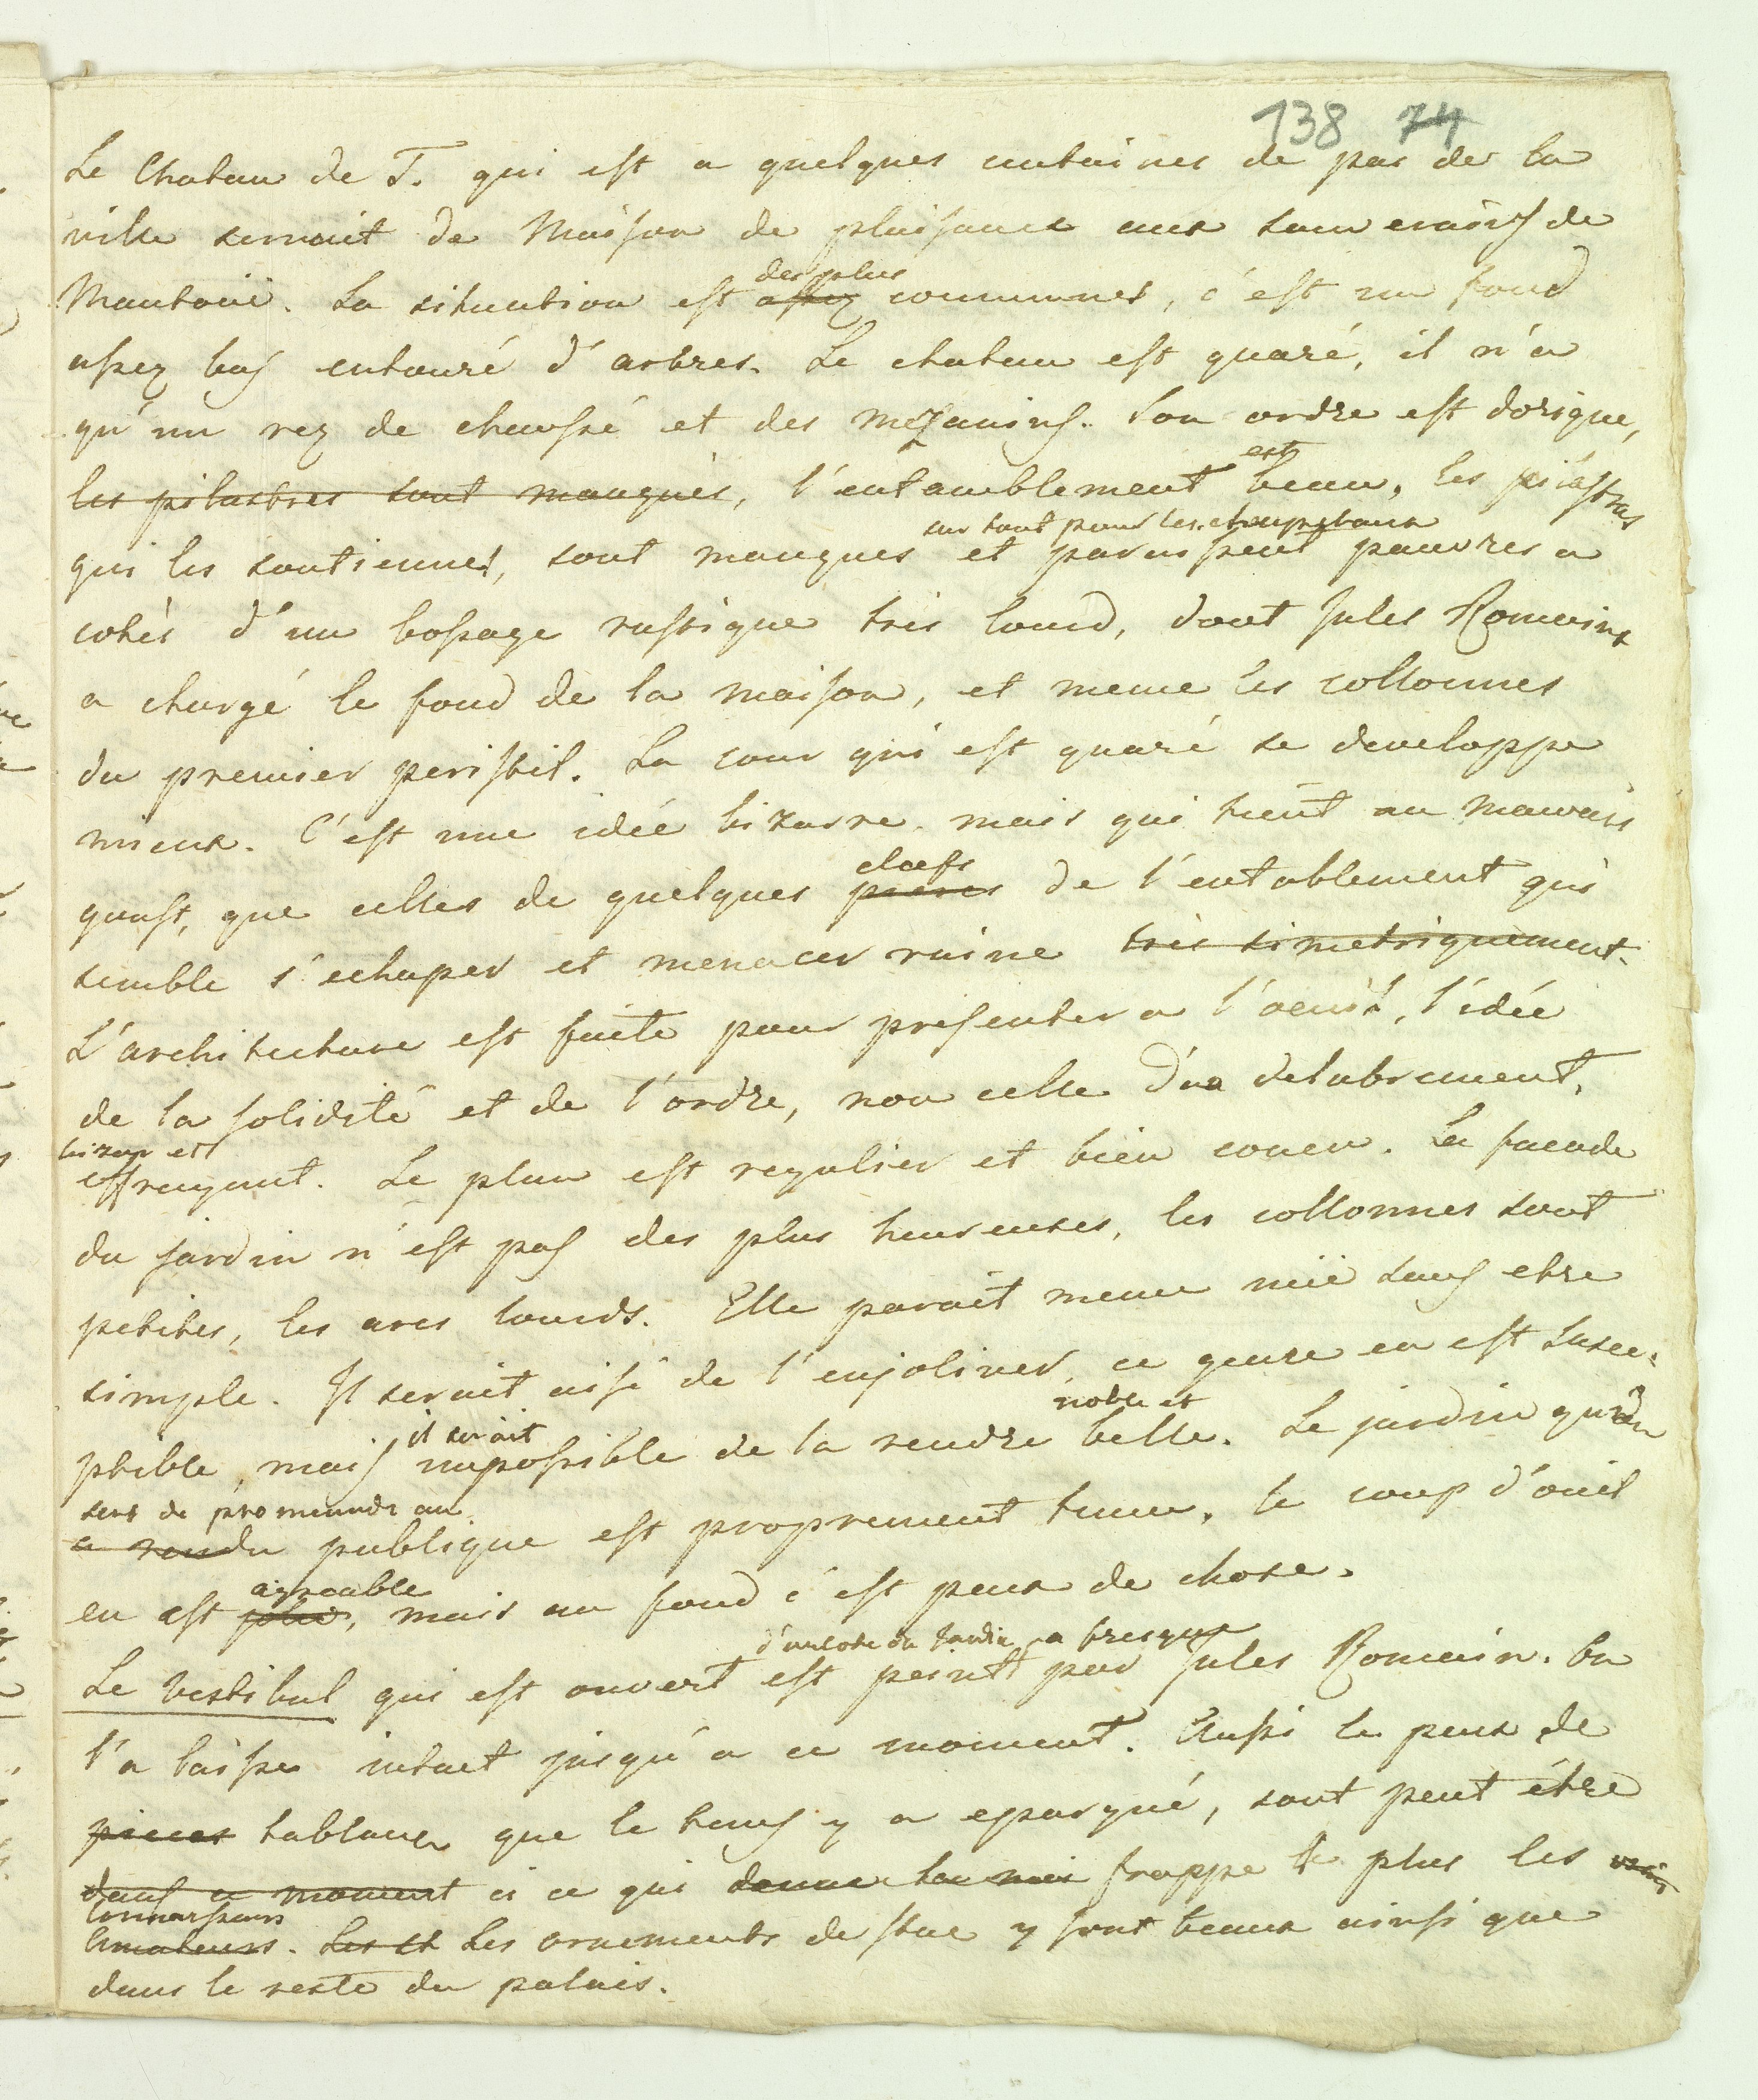 138 74
Le Chateau de T. qui est a quelques centaines de pas de la
ville servait de Maison de plaisance aux souverains de
des plus
Mantoüe. La situation est assez communes, c'est un fond
assez bas entouré d'arbres. Le chateau est quaré, il n'a
qu'un rez de chaussé et des mezanins. Son ordre est dorique,
est
les pilastres sont manqués, l'entamblement beau, les pilastres
sur tout pour les chapiteaux
qui les soutiennet, sont manques et paraissent pauvres a
cotés d'un bossage rustique tres lourd, dont Jules Romains
a chargé le fond de la maison, et meme les collonnes
du premier peristil. La cour qui est quaré se developpe
mieux. C'est une idée bizarre, mais qui tient au mauvais
clefs
goust, que celles de quelques pierres de l'entablement qui
semble s'echaper et menacer ruine tres simetriquement.
L'architecture est faite pour presenter a l'oeuil, l'idée
de la solidité et de l'ordre, non celle d'un delabrement,
bizar et
effrayant. Le plan est regulier et bien concu. La facade
du jardin n'est pas des plus heureuses, les collonnes sont
petites, les arcs lourds. Elle parait meme nüe sans etre
simple. Il serait aisé de l'enjoliver, ce genre en est susce-
il serait noble et
ptible, mais impossible de la rendre belle. Le jardin qu'on
sers de promenade au
a rendu publique est proprement tenu, le coup d'oeil
agreable
en est joli, mais au fond c'est peux de chose.
d'un coté du Jardin a fresque
Le Vestibul qui est ouvert est peint par Jules Romain. On
l'a laisse intact jusqu'a ce moment. Aussi le peux de
pieces tableaux que le tems y a epargné, sont peut être
dans ce moment ci ce qui donne frappe le plus les
connaisseurs
Amateurs. Les Les ornements de stuc y sont beaux ainsi que
dans le reste du palais.